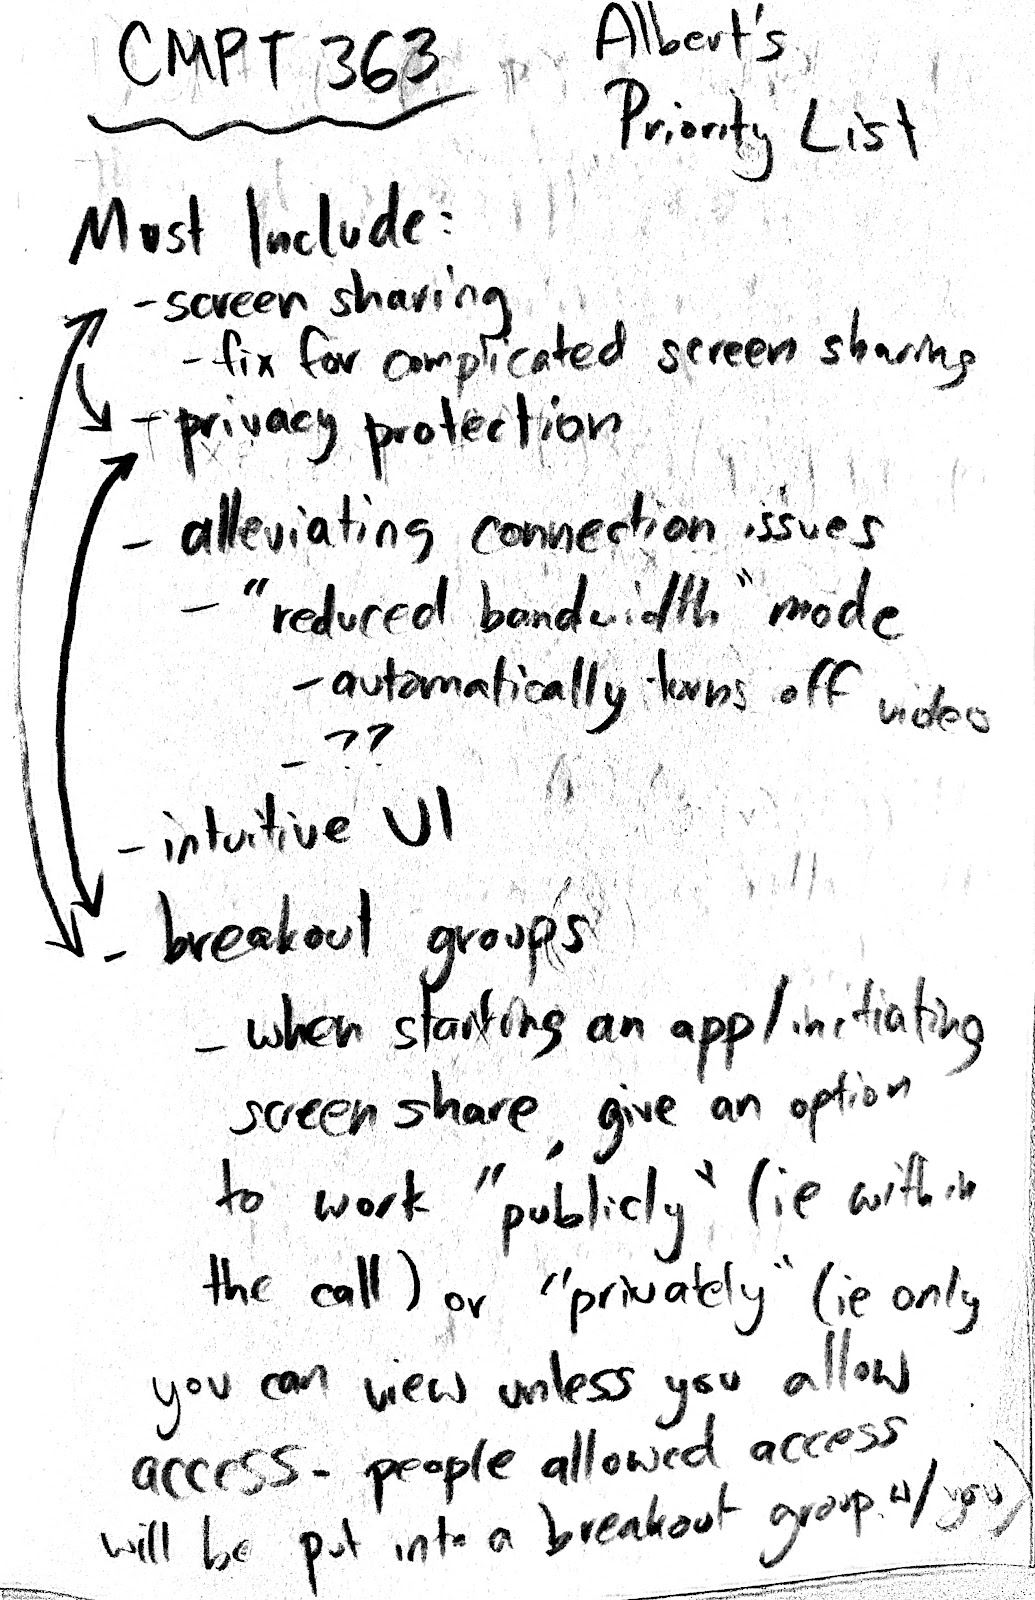 CMPT 363
Albert's
Priority List
Must Include:
- screen sharing
- fix for complicated screen sharing
- privacy protection
- alleviating connection issues
- "reduced bandwidth" mode
- automatically turns off video
- ??
- intuitive UI
- breakout groups
- when starting an app/initiating
screen share, give an option
to work "publicly" (ie within
the call) or "privately" (ie only
you can view unless you allow
access - people allowed access
will be put into a breakout group w/ you)